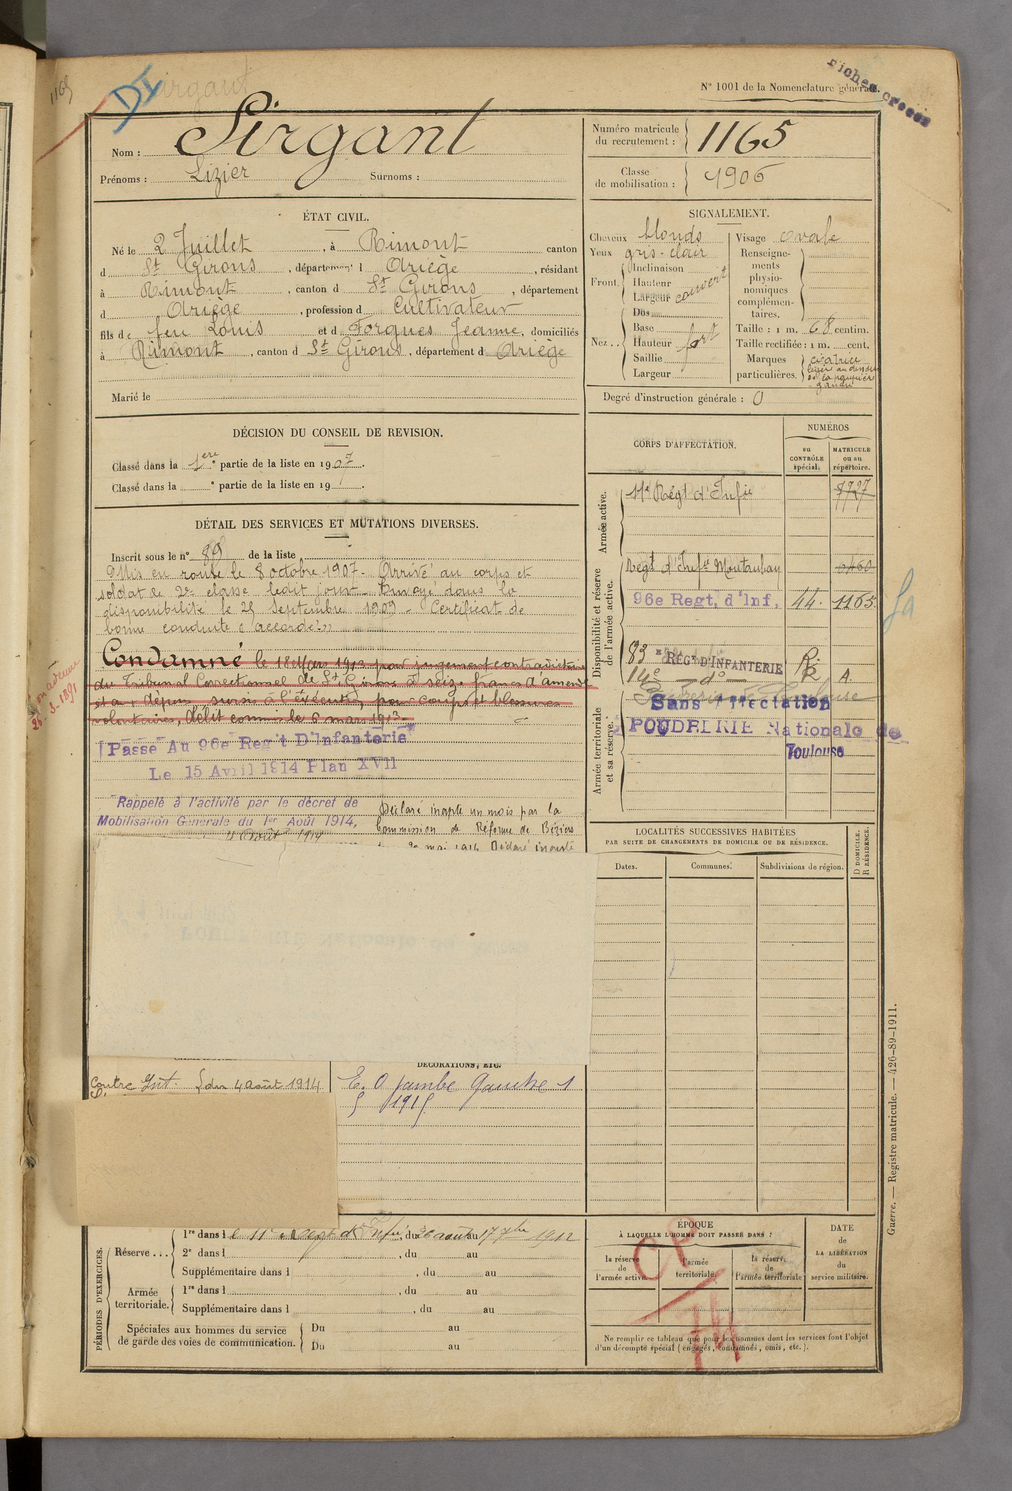 1165
DI
Sirgant
Fiches croisées
N° 1001 de la Nomenclature générale.
Nom : Sirgant
Prénoms : Lizier Surnoms :
Numéro matricule du recrutement : 1165
Classe de mobilisation : 1906
ÉTAT CIVIL.
Né le 2 Juillet , à Rimont canton
d St Girons , département d Ariège , résidant
à Rimont , canton d St Girons , département
d Ariège , profession d Cultivateur
fils de feu Louis et d Forgues Jeanne , domiciliés
à Rimont , canton d St Girons , département d Ariège
Marié le
SIGNALEMENT.
Cheveux blonds
Yeux gris-clair
Front. Inclinaison
Hauteur
Largeur couvert
Nez .. Dos
Base
Hauteur fort
Saillie
Largeur
Visage ovale
Renseignements physionomiques complémentaires.
Taille : 1 m. 68 centim.
Taille rectifiée : 1 m. cent.
Marques particulières. cicatrice
Degré d'instruction générale : 0
DÉCISION DU CONSEIL DE REVISION.
Classé dans la 1ere partie de la liste en 1907.
Classé dans la e partie de la liste en 19 .
DÉTAIL DES SERVICES ET MUTATIONS DIVERSES.
Inscrit sous le n° 89 de la liste
Mis en route le 8 octobre 1907. Arrivé au corps et
soldat de 2e classe ledit jour. Envoyé dans la
disponibilité le 25 Septembre 1909. Certificat de
bonne conduite « accordé »
Condamné le 18 Mars 1912 pour jugement contradictoire
du Tribunal Correctionnel de St Girons à seize francs d'amende
et aux dépens sursis à l'exécution pour coups et blessures
volontaires, délit commis le 6 mars 1912
Passé Au 96e Reg't D'Infanterie
Le 15 Avril 1914 Plan XVII
Rappelé à l'activité par le décret de
Mobilisation Générale du 1er Août 1914,
4 Août 1914
Déclaré inapte un mois par la
Commission de Réforme de Béziers
mai 1914 Déclaré inapte
CORPS D'AFFECTATION.
NUMÉROS
au CONTRÔLE spécial.
MATRICULE ou au répertoire.
Armée active.
11e Régt d'Infie 7727
Disponibilité et réserve de l'armée active.
Régt d'Infie Montauban
96e Regt. d'Inf. 44. 1165
83 e REGt D'INFANTERIE R
14e do R A.
Armée territoriale et sa réserve.
Sans Affectation
POUDRERIE Nationale de
Toulouse
LOCALITÉS SUCCESSIVES HABITÉES
PAR SUITE DE CHANGEMENTS DE DOMICILE OU DE RÉSIDENCE.
Dates. Communes. Subdivisions de région.
D DOMICILE. R RÉSIDENCE.
DÉCORATIONS, ETC.
Contre du 4 août 1914
E. O jambe Gauche 1
1915
PÉRIODES D'EXERCICES.
Réserve ...
1re dans le 11e Regt d'Infie, du 26 août au 17 7bre 1912
2e dans l , du au
Supplémentaire dans l , du au
Armée territoriale.
1re dans l , du au
Supplémentaire dans l , du au
Spéciales aux hommes du service de garde des voies de communication.
Du au
Du au
ÉPOQUE
À LAQUELLE L'HOMME DOIT PASSER DANS :
la réserve de l'armée active.
l'armée territoriale.
la réserve de l'armée territoriale
DATE de LA LIBÉRATION du service militaire.
CP
Ne remplir ce tableau que pour les hommes dont les services font l'objet
d'un décompte spécial (engagés, condamnés, omis, etc.).
Guerre. — Registre matricule. — 426-89-1911.